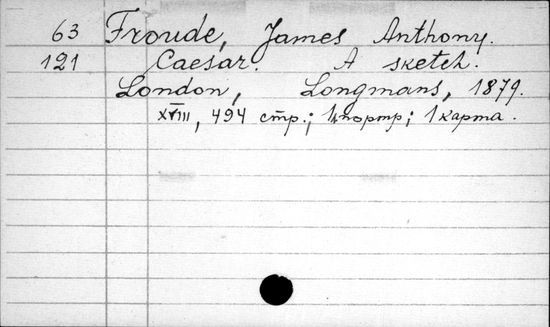 63 Froude, James Anthony.
121 Caesar. A sketch.
London, Longmans, 1879.
XVIII, 494 стр.; 1 портр; 1 карта.